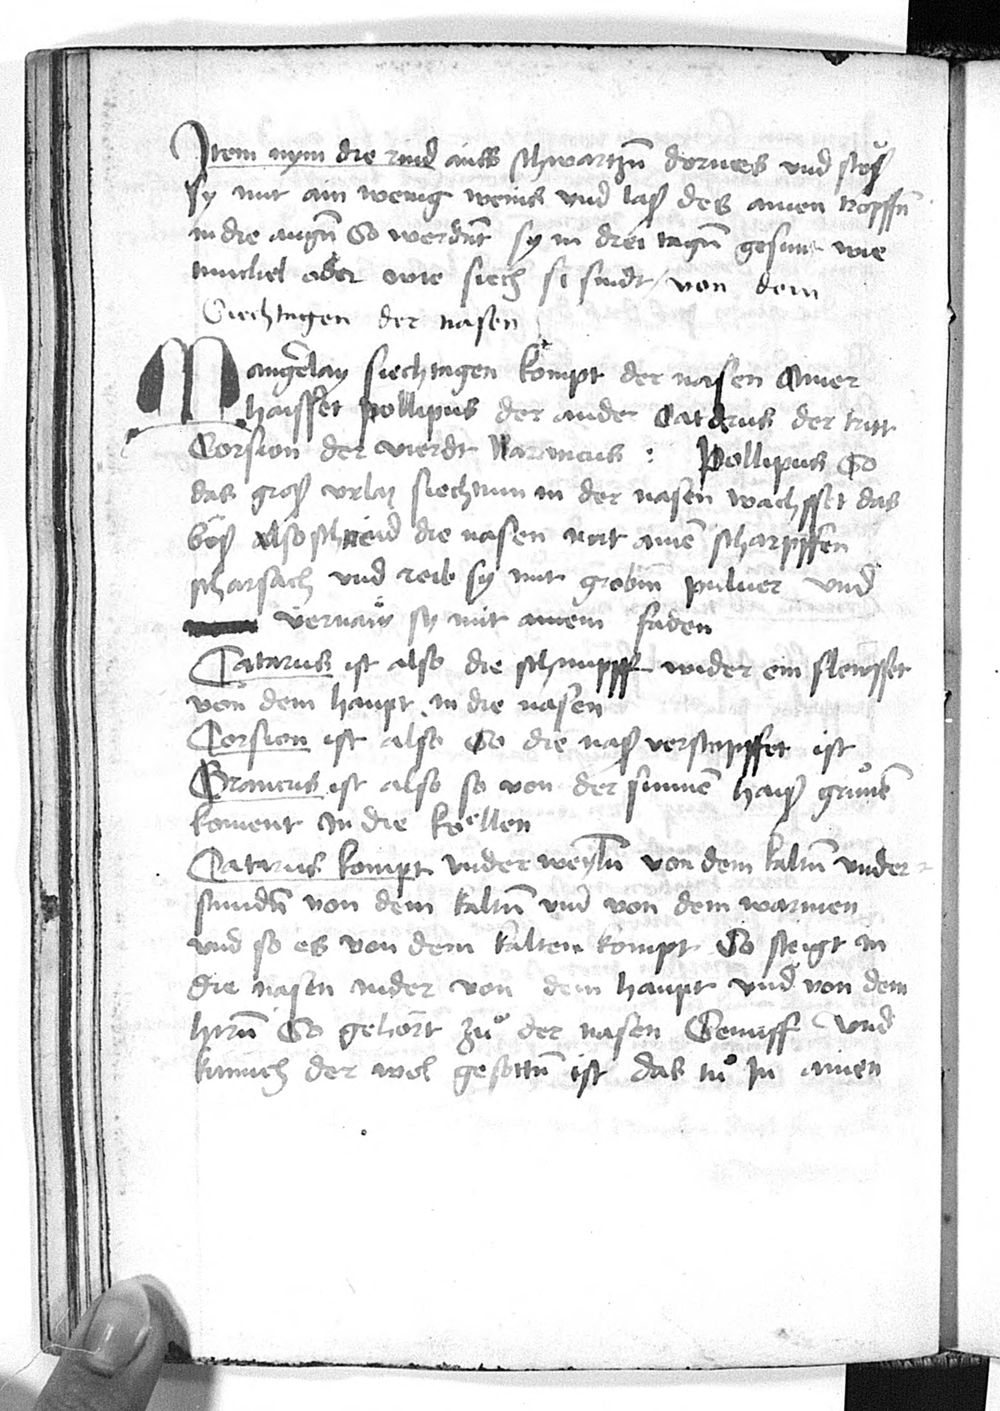 Item nym die rind aines schwartzñ dornes vnd stoͤß
sy mit ain wenig weins vnd laß des ainen tropffñ
in die augñ So werdñt sy in drei tagñ gesunt wie
tunckel oder wie siech si sindt von dem
Siechtagen der nasen
Mangerlay siechtagen kompt der nasen Ainer
haisset pollipus der ander Catarus der tritt
Corsion der vierdt Narancus : Pollipus So
das groß vnd siechtum in der nasen wachsset das
böß also schneid die nasen mit ainē scharpffen
scharsach vnd reib sy mit grobm puluer vnd
vernaͤy sy mit ainem faden
Catarus ist also die schnupff wider ein fleusset
von dem haupt in die nasen
Corsion ist also So die naß verstopffet ist
Brancus ist also so von der haiß
koment In die kellen
Catarus kompt vnder weylñ von dem kaltñ vnder
stundñ von dem kaltñ vnd von dem warmen
vnd so es von dem kalten kompt So steigt in
die nasen nider von dem haupt vnd von dem
hirñ So gehört zuͦ der nasen Senff vnd
kümich der wol gesottñ ist das tuͦ In ainen